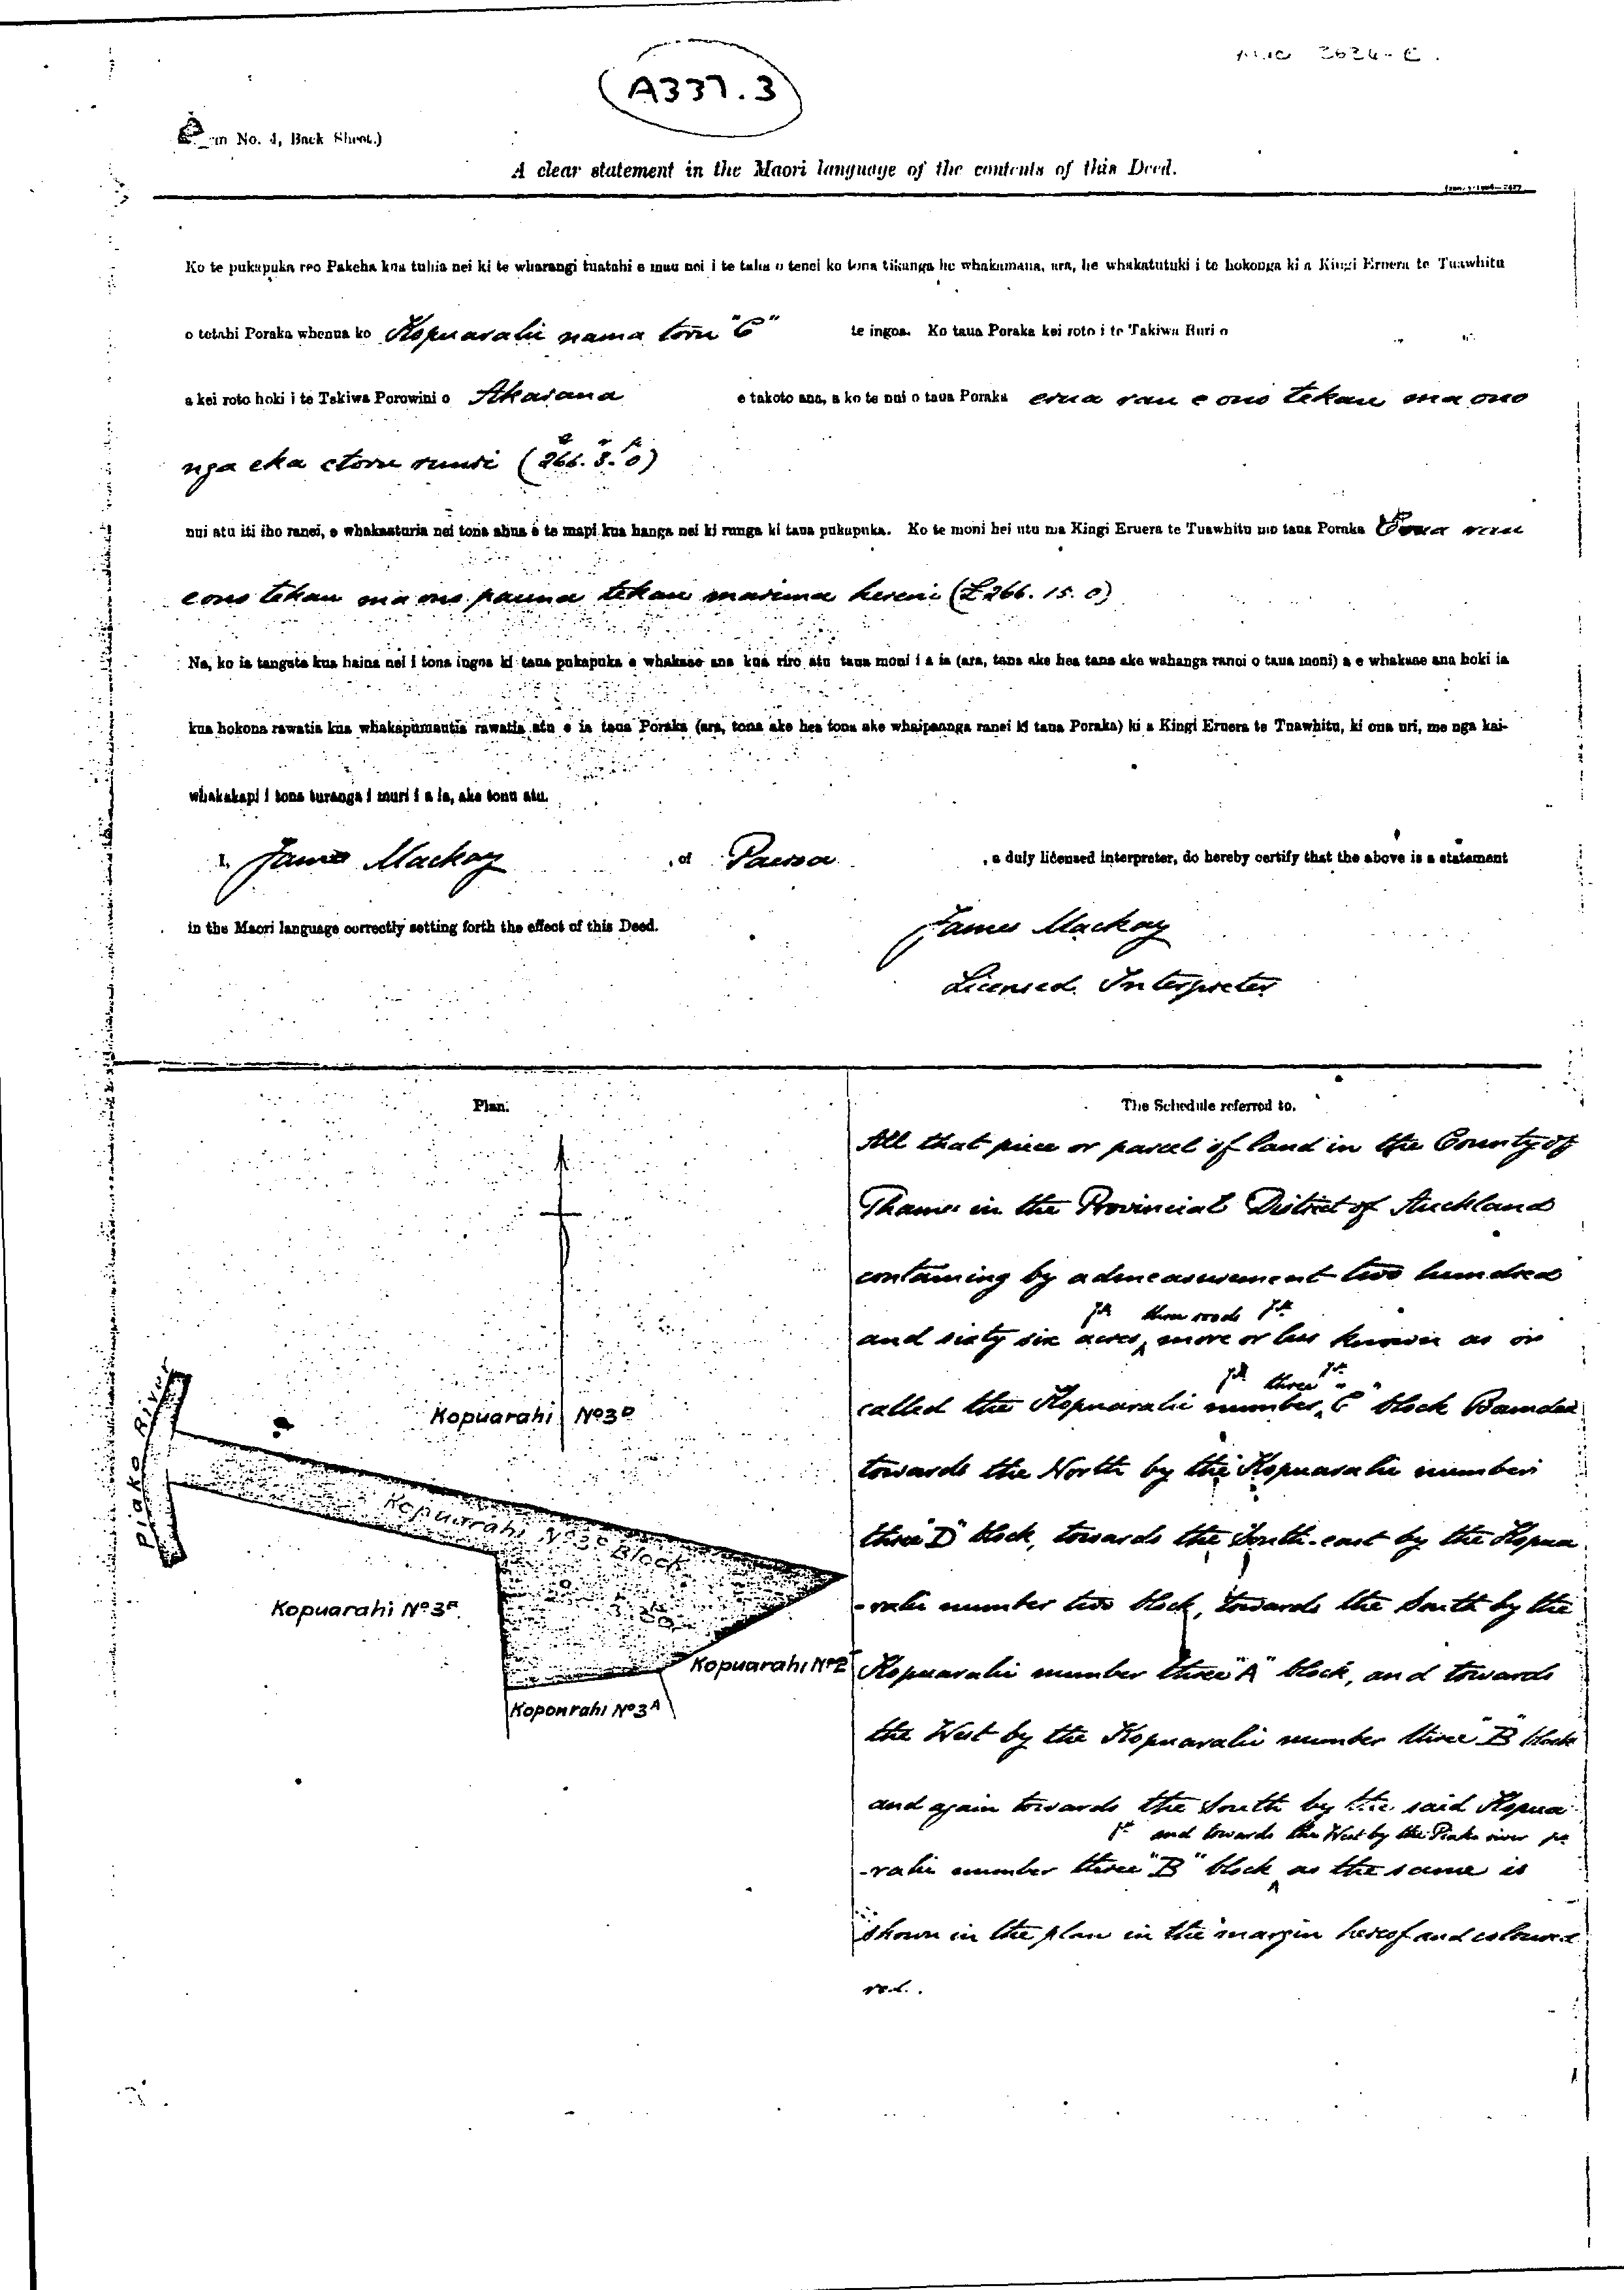 A337.3
2624-C.
No. 4, Back Sheet.)
A clear statement in the Maori language of the contents of this Deed.
Ko te pukapuka reo Pakeha kua tuhia nei ki te wharangi tuatahi e mau nei i te taha o tenei ko tona tikanga he whakamana, ara, he whakatutuki i te hokonga ki a Kingi Eruera te Tuawhitu
o tetahi Poraka whenua ko Kopuarahi nama toru "C" te ingoa. Ko taua Poraka kei roto i te Takiwa Ruri o
a kei roto hoki i te Takiwa Porowini o Akarana e takoto ana, a ko te nui o taua Poraka erua rau e ono tekau ma ono
nga eka etoru ruuri (266. 3. 0)
nui atu iti iho ranei, e whakaaturia nei tona ahua e te mapi kua hanga nei ki runga ki taua pukapuka. Ko te moni hei utu ma Kingi Eruera te Tuawhitu mo taua Poraka Erua rau
eono tekau ma ono pauna tekau marima hereni (£266. 15. 0)
Na, ko ia tangata kua haina nei i tona ingoa ki taua pukapuka e whakaae ana kua riro atu taua moni i a ia (ara, tana ake hea tana ake wahanga ranei o taua moni) a e whakaae ana hoki ia
kua hokona rawatia kua whakapumautia rawatia atu e ia taua Poraka (ara, tona ake hea tona ake whaipaanga ranei ki taua Poraka) ki a Kingi Eruera te Tuawhitu, ki ona uri, me nga kai-
whakakapi i tona turanga i muri i a ia, ake tonu atu.
I, James Mackay, of Paeroa, a duly licensed interpreter, do hereby certify that the above is a statement
in the Maori language correctly setting forth the effect of this Deed.
James Mackay
Licensed Interpreter
Plan.
Kopuarahi No 3D
Piako River
Kopuarahi No 3C Block
Kopuarahi No 3B
Kopuarahi No 2
Koponrahi No 3A
The Schedule referred to.
All that piece or parcel of land in the County of
Thames in the Provincial District of Auckland
containing by admeasurement two hundred
three roods
and sixty six acres, more or less known as or
three
called the Kopuarahi number "C" block Bounded
towards the North by the Kopuarahi number
three "D" block, towards the South-east by the Kopua
-rahi number two block, towards the South by the
Kopuarahi number three "A" block, and towards
the West by the Kopuarahi number three "B" block
and again towards the South by the said Kopua
and towards the West by the Piako river
-rahi number three "B" block as the same is
shown in the plan in the margin hereof and coloured
red.